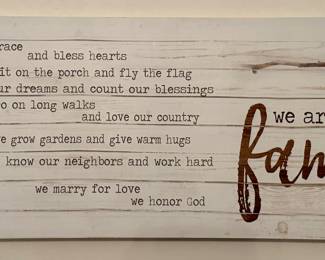 and bless hearts
it on the porch and fly the flag
ur dreams and count our blessings
o on long walks
and love our country
e grow gardens and give warm hugs
know our neighbors and work hard
we marry for love
we honor God
we ar
fam